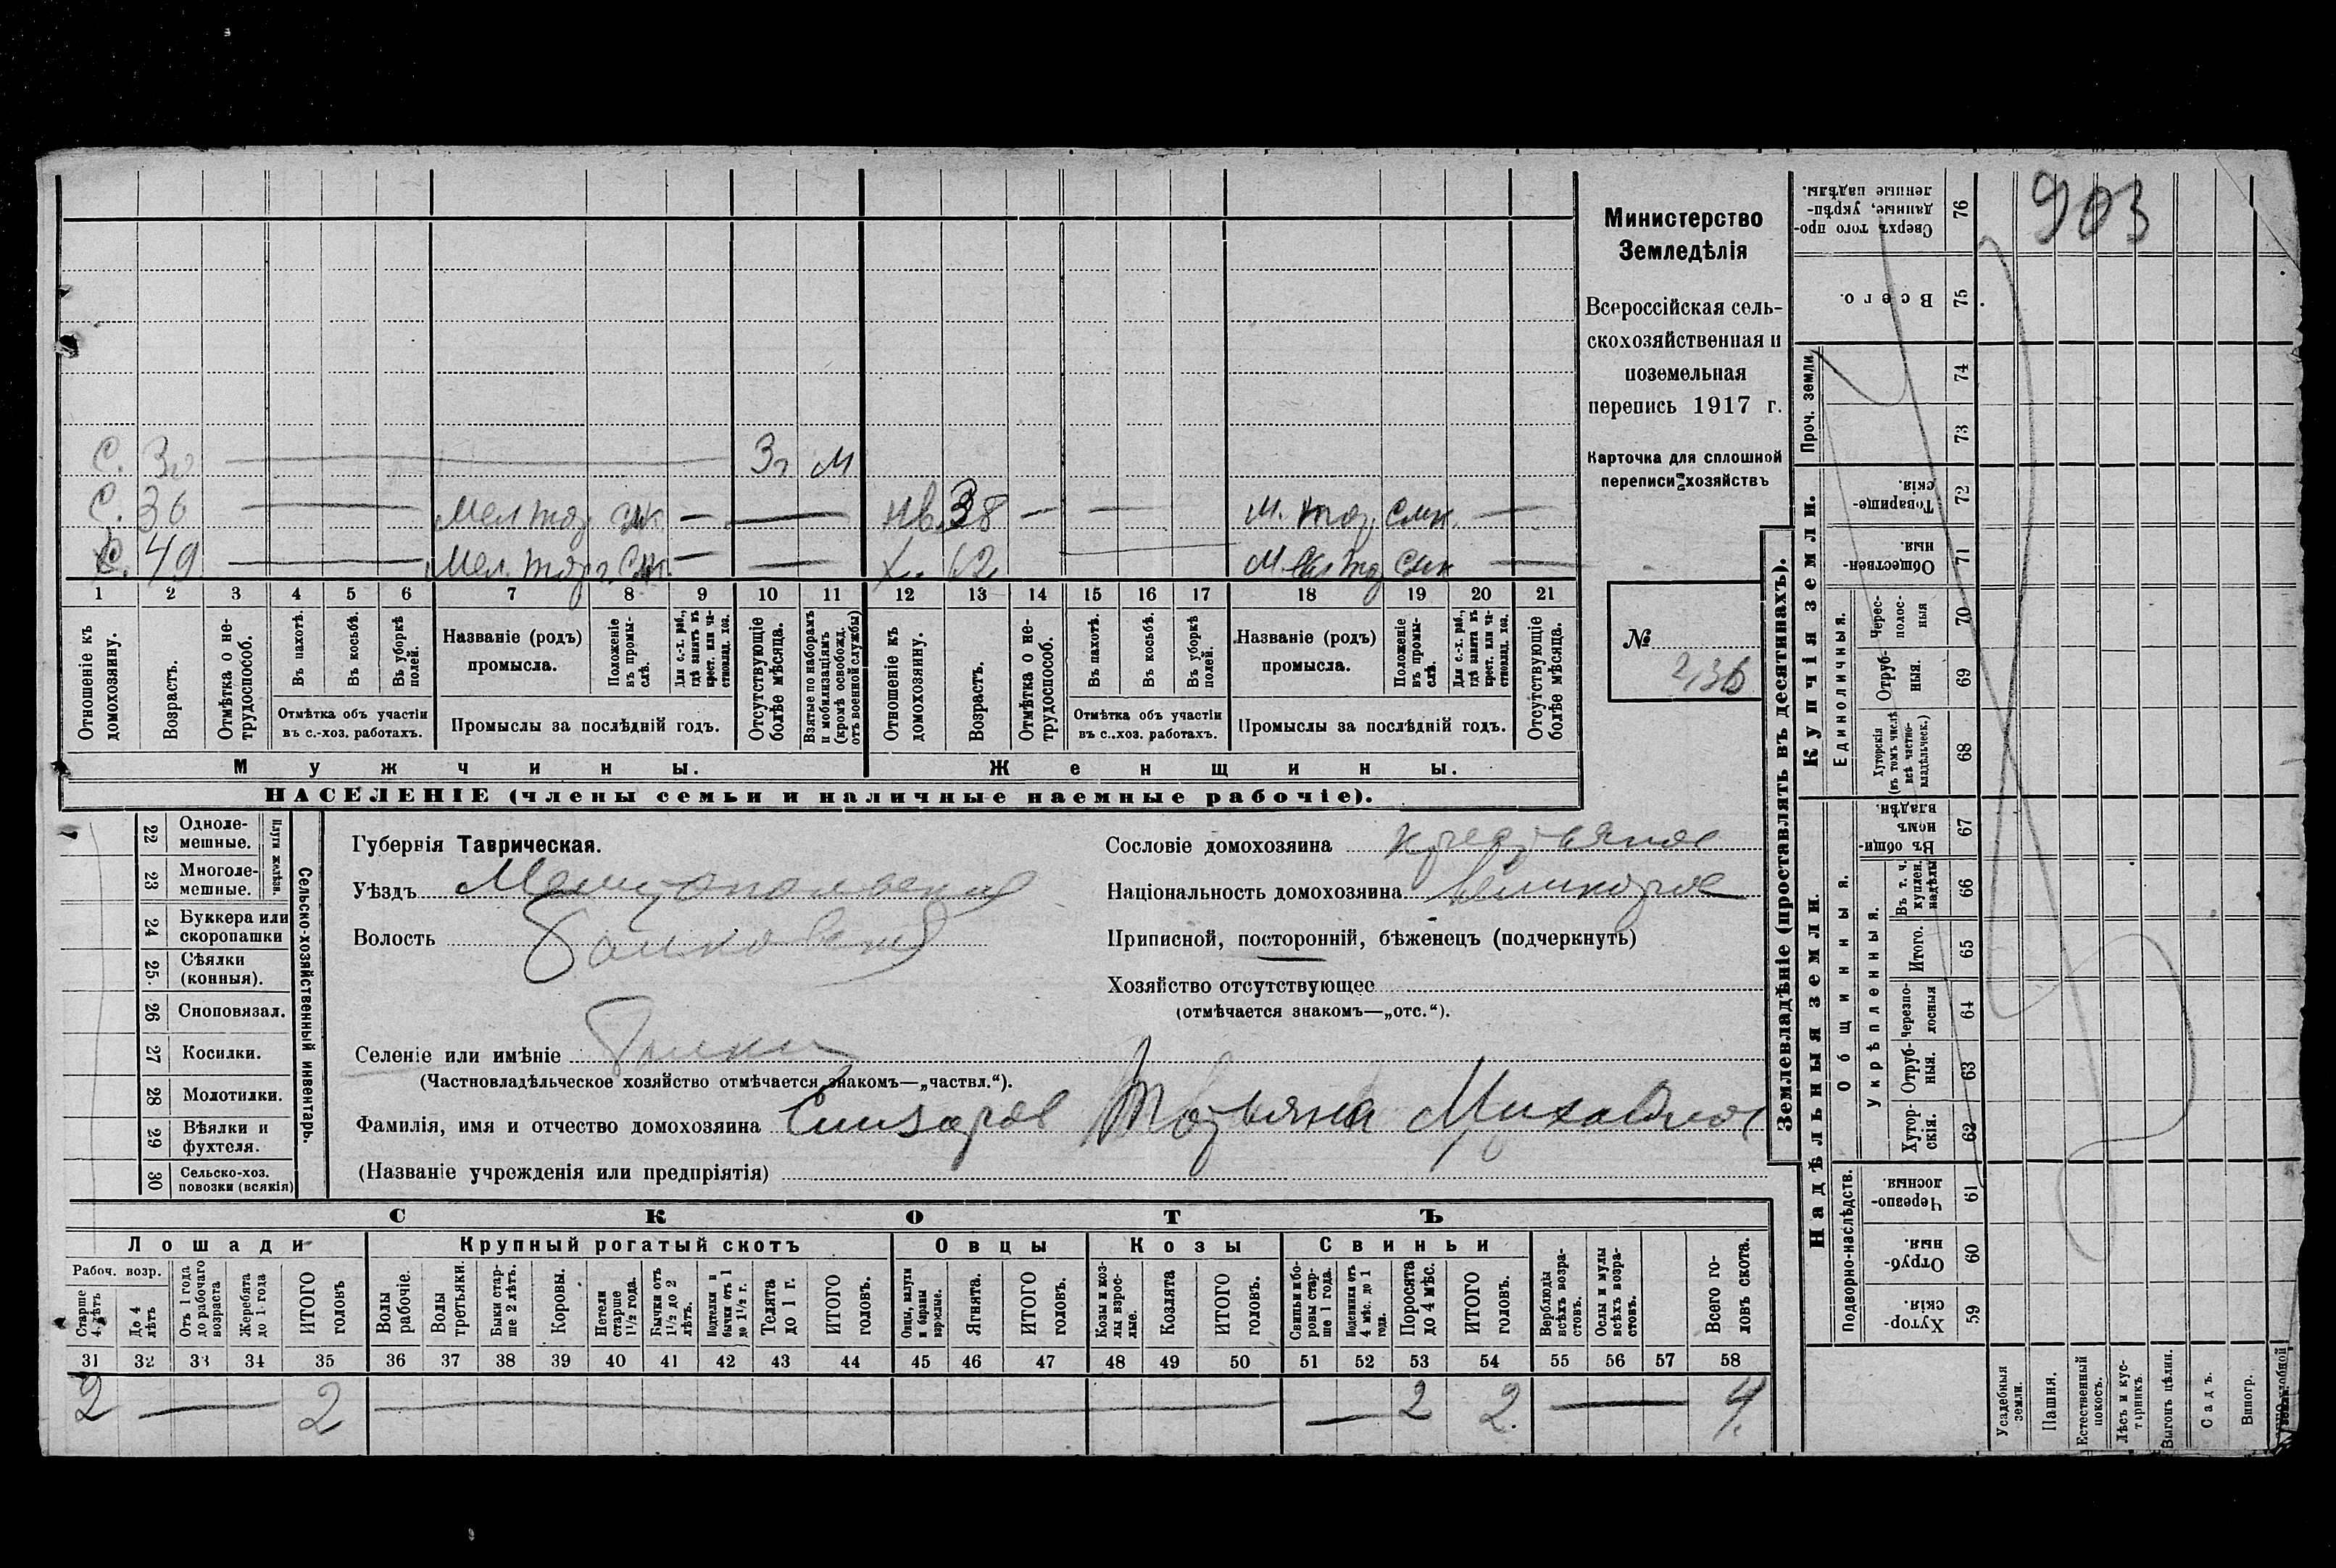 903
Министерство
Земледѣлія
Всероссійская сель-
скохозяйственная и
поземельная
перепись 1917 г.
Карточка для сплошной
переписи хозяйствъ
№ 236
С. 30 — 3 г М
С. 36 — Мел тор — — нв. 38 — — М. тор. —
С. 49 — Мел. торг. — — Х. 62 — М тор —
1 2 3 4 5 6 7 8 9 10 11 12 13 14 15 16 17 18 19 20 21
Отношеніе къ домохозяину.
Возрастъ.
Отмѣтка о не-трудоспособ.
Въ пахотѣ.
Въ косьбѣ.
Въ уборкѣ полей.
Отмѣтка объ участіи въ с.-хоз. работахъ.
Названіе (родъ) промысла.
Положеніе въ промы-слѣ.
Для с.-х. раб., гдѣ занятъ въ крест. или ча-стновлад. хоз.
Промыслы за послѣдній годъ.
Отсутствующіе болѣе мѣсяца.
Взятые по наборамъ и мобилизаціямъ (кромѣ освобожд. отъ военной службы)
Отношеніе къ домохозяину.
Возрастъ.
Отмѣтка о не-трудоспособ.
Въ пахотѣ.
Въ косьбѣ.
Въ уборкѣ полей.
Отмѣтка объ участіи въ с.-хоз. работахъ.
Названіе (родъ) промысла.
Положеніе въ промы-слѣ.
Для с.-х. раб., гдѣ занята въ крест. или ча-стновлад. хоз.
Промыслы за послѣдній годъ.
Отсутствующіе болѣе мѣсяца.
Мужчины.
Женщины.
НАСЕЛЕНІЕ (члены семьи и наличные наемные рабочіе).
22 Одноле-мешные.
23 Многоле-мешные.
Плуги желѣзн.
24 Буккера или скоропашки
25. Сѣялки (конныя).
26 Сноповязал.
27 Косилки.
28 Молотилки.
29 Вѣялки и фухтеля.
30 Сельско-хоз. повозки (всякія)
Сельско-хозяйственный инвентарь.
Губернія Таврическая.
Уѣздъ Мелитопольский
Волость
Селеніе или имѣніе
(Частновладѣльческое хозяйство отмѣчается знакомъ—„частвл.“).
Фамилія, имя и отчество домохозяина Татьяна
(Названіе учрежденія или предпріятія)
Сословіе домохозяина
Національность домохозяина
Приписной, посторонній, бѣженецъ (подчеркнуть)
Хозяйство отсутствующее
(отмѣчается знакомъ—„отс.“).
СКОТЪ
Лошади
Крупный рогатый скотъ
Овцы
Козы
Свиньи
Рабоч. возр.
Старше 4 лѣтъ
До 4 лѣтъ
Отъ 1 года до рабочаго возраста
Жеребята до 1 года
ИТОГО головъ
Волы рабочіе.
Волы третьяки.
Быки стар-ше 2 лѣтъ.
Коровы.
Нетели старше 1½ года.
Бычки отъ 1½ до 2 лѣтъ.
Подтелки и бычки отъ 1 до 1½ г.
Телята до 1 г.
ИТОГО головъ.
Овцы, валухи и бараны взрослые.
Ягнята.
ИТОГО головъ.
Козы и коз-лы взрос-лые.
Козлята
ИТОГО головъ.
Свиньи и бо-ровы стар-ше 1 года.
Подсвинки отъ 4 мѣс. до 1 года.
Поросята до 4 мѣс.
ИТОГО головъ.
Верблюды всѣхъ возра-стовъ.
Ослы и мулы всѣхъ возра-стовъ.
Всего го-ловъ скота.
31 32 33 34 35 36 37 38 39 40 41 42 43 44 45 46 47 48 49 50 51 52 53 54 55 56 57 58
2 — 2 — — 2 2. — 4.
Землевладѣніе (проставлять въ десятинахъ).
Сверхъ того про-данные, укрѣп-ленные надѣлы. 76
Всего. 75
Проч. земли. 74
73
Купчія земли.
Товарище-скія. 72
Обществен-ныя. 71
Единоличныя.
Черес-полос-ныя 70
Отруб-ныя. 69
Хуторскія (въ томъ числѣ всѣ частно-владѣльческ.) 68
Надѣльныя земли.
Общинныя.
Въ общин-номъ владѣн. 67
Укрѣпленныя.
Въ т. ч. куплен. надѣлы 66
Итого. 65
Черезпо-лосныя 64
Отруб-ныя. 63
Хутор-скія. 62
Подворно-наслѣдств.
Черезпо-лосныя 61
Отруб-ныя. 60
Хутор-скія 59
Усадебныя земли.
Пашня.
Естественный покосъ.
Лѣсъ и кус-тарникъ.
Выгонъ цѣлин.
Садъ.
Виногр.